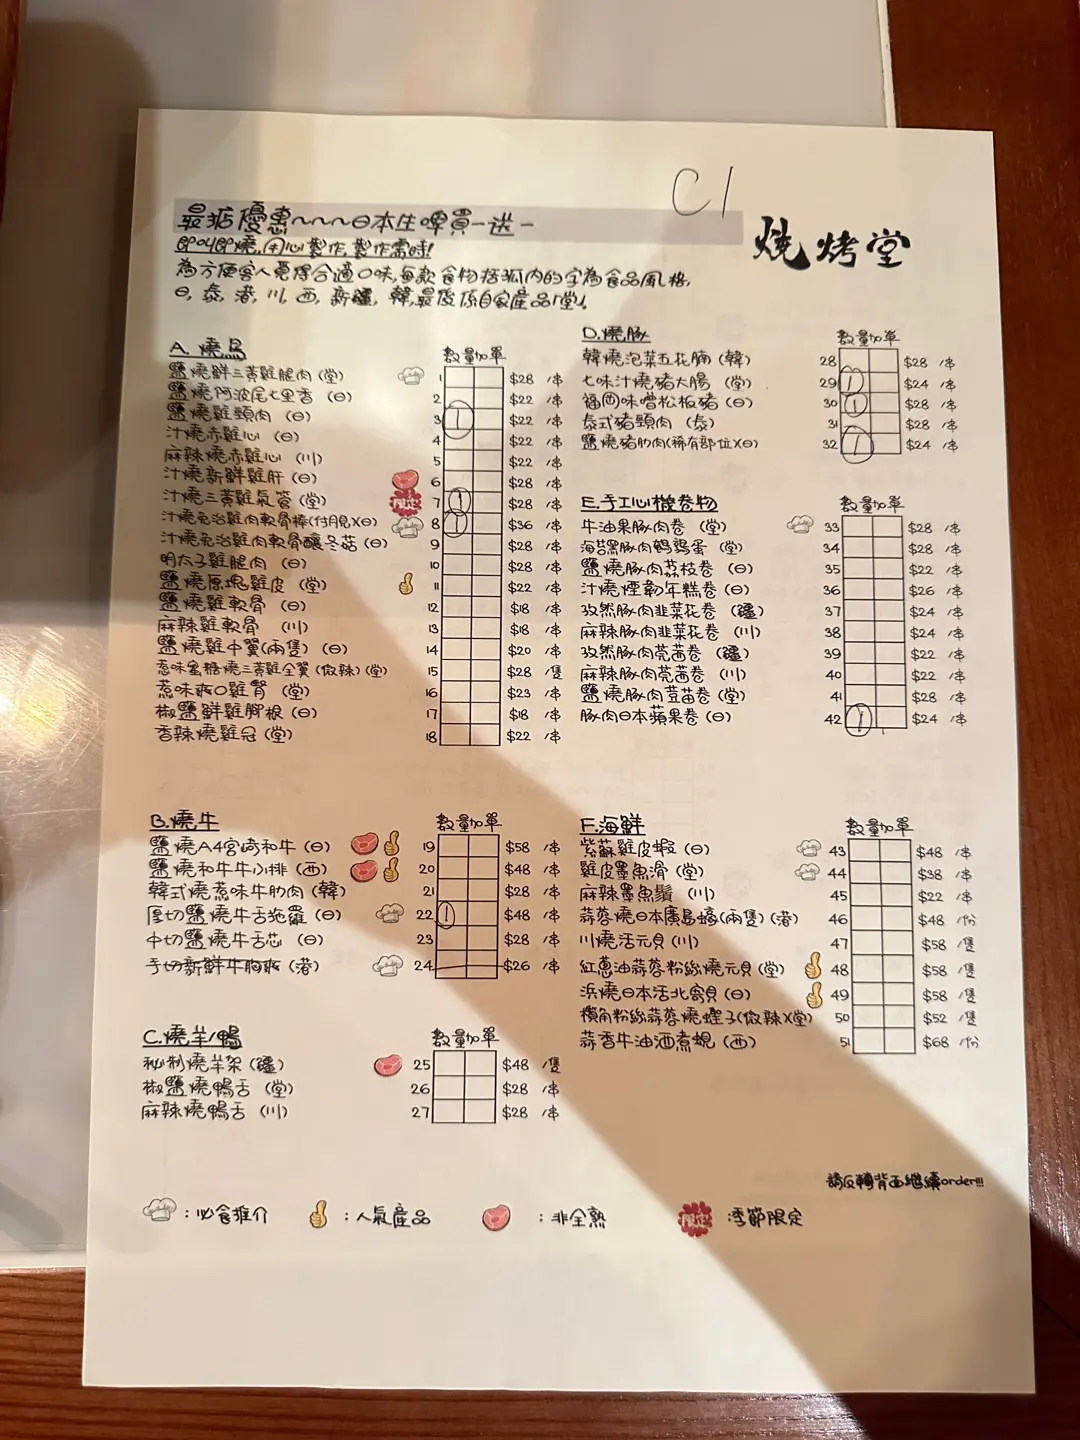 C1
最掂優惠~~~日本生啤買一送一
即叫即燒,用心製作,製作需時!
為方便客人覓得合適口味,每款食物括弧内的字為食品風格,
日,泰,港,川,西,新疆,韓,最後係自家產品「堂」!
燒烤堂
A. 燒鳥 數量加單
鹽燒鮮三黃雞腿肉(堂) 1 $28 /串
鹽燒阿波尾七里香(日) 2 $22 /串
鹽燒雞頸肉(日) 3 1 $22 /串
汁燒赤雞心(日) 4 $22 /串
麻辣燒赤雞心(川) 5 $22 /串
汁燒新鮮雞肝(日) 6 $28 /串
汁燒三黃雞氣管(堂) 限定 7 1 $28 /串
汁燒免治雞肉軟骨棒(付月見)(日) 8 1 $36 /串
汁燒免治雞肉軟骨釀冬菇(日) 9 $28 /串
明太子雞腿肉(日) 10 $28 /串
鹽燒原塊雞皮(堂) 11 $22 /串
鹽燒雞軟骨(日) 12 $18 /串
麻辣雞軟骨(川) 13 $18 /串
鹽燒雞中翼(兩隻)(日) 14 $20 /串
惹味蜜糖燒三黃雞全翼(微辣)(堂) 15 $28 /隻
惹味爽口雞腎(堂) 16 $23 /串
椒鹽鮮雞腳根(日) 17 $18 /串
香辣燒雞冠(堂) 18 $22 /串
B.燒牛 數量加單
鹽燒A4宮崎和牛(日) 19 $58 /串
鹽燒和牛牛小排(西) 20 $48 /串
韓式燒惹味牛肋肉(韓) 21 $28 /串
厚切鹽燒牛舌拖羅(日) 22 1 $48 /串
中切鹽燒牛舌芯(日) 23 $28 /串
手切新鮮牛胸爽(港) 24 $26 /串
C.燒羊/鴨 數量加單
秘制燒羊架(疆) 25 $48 /隻
椒鹽燒鴨舌(堂) 26 $28 /串
麻辣燒鴨舌(川) 27 $28 /串
D.燒豚 數量加單
韓燒泡菜五花腩(韓) 28 $28 /串
七味汁燒豬大腸(堂) 29 1 $24 /串
福岡味噌松板豬(日) 30 1 $28 /串
泰式豬頸肉(泰) 31 $28 /串
鹽燒豬肋肉(稀有部位)(日) 32 1 $24 /串
E.手工心機卷物 數量加單
牛油果豚肉卷(堂) 33 $28 /串
海苔黑豚肉鵪鶉蛋(堂) 34 $28 /串
鹽燒豚肉荔枝卷(日) 35 $22 /串
汁燒煙勒年糕卷(日) 36 $26 /串
孜然豚肉韭菜花卷(疆) 37 $24 /串
麻辣豚肉韭菜花卷(川) 38 $24 /串
孜然豚肉莞茜卷(疆) 39 $22 /串
麻辣豚肉莞茜卷(川) 40 $22 /串
鹽燒豚肉荳苗卷(堂) 41 $28 /串
豚肉日本蘋果卷(日) 42 1 $24 /串
F.海鮮 數量加單
紫蘇雞皮蝦(日) 43 $48 /串
雞皮墨魚滑(堂) 44 $38 /串
麻辣墨魚鬚(川) 45 $22 /串
蒜蓉燒日本廣島蠔(兩隻)(港) 46 $48 /份
川燒活元貝(川) 47 $58 /隻
紅蔥油蒜蓉粉絲燒元貝(堂) 48 $58 /隻
浜燒日本活北寄貝(日) 49 $58 /隻
欖角粉絲蒜蓉燒蟶子(微辣)(堂) 50 $52 /隻
蒜香牛油酒煮蜆(西) 51 $68 /份
請反轉背面繼續order!!!
:必食推介 :人氣產品 :非全熟 限定 :季節限定